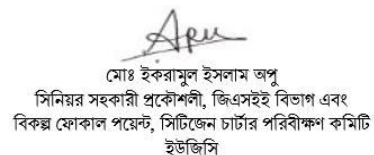 Apu
মোঃ ইকরামুল ইসলাম অপু
সিনিয়র সহকারী প্রকৌশলী, জিএসইই বিভাগ এবং
বিকল্প ফোকাল পয়েন্ট, সিটিজেন চার্টার পরিবীক্ষণ কমিটি
ইউজিসি